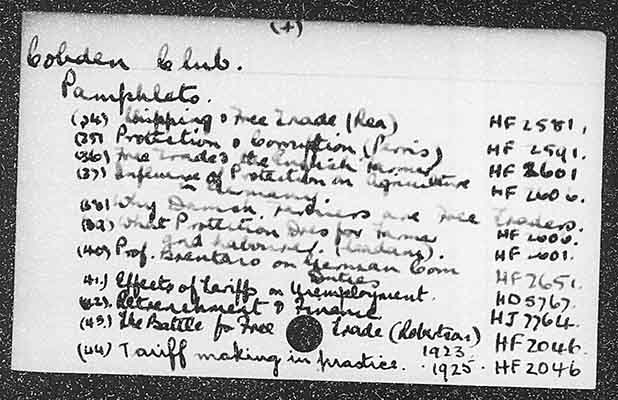 (4)
Cobden Club.
Pamphlets.
(34) Shipping & Free Trade (Rea) HF 2581.
(35) Protection & Corruption (Perris) HF 2591.
(36) Free Trade & the English Farmer HF 2601
(37) Influence of Protection on Agriculture HF 2606.
in Germany.
(38) Why Danish Farmers are Free Traders.
(39) What Protection Does for Farmer HF 2606.
and Labourer. HF 2601.
(40) Prof. Brentano on German Corn
Duties HF 2651.
41.) Effects of Tariffs on Unemployment. HD 5767.
(42). Retrenchment & Finance HJ 7764.
(43.) The Battle for Free Trade (Robertson) HF 2046.
1923
(44) Tariff making in practice. 1925. HF 2046